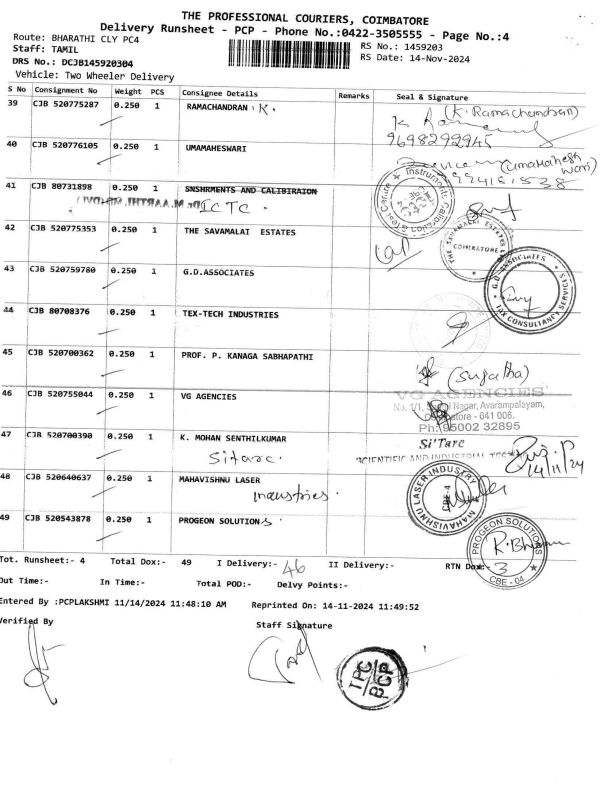 THE PROFESSIONAL COURIERS, COIMBATORE
Delivery Runsheet - PCP - Phone No.:0422-3505555 - Page No.:4
Route: BHARATHI CLY PC4 RS No.: 1459203
Staff: TAMIL RS Date: 14-Nov-2024
DRS No.: DCJB145920304
Vehicle: Two Wheeler Delivery
S No Consignment No Weight PCS Consignee Details Remarks Seal & Signature
39 CJB 520775287 0.250 1 RAMACHANDRAN . K . (K. Ramachandran)
9698299945
40 CJB 520776105 0.250 1 UMAMAHESWARI (Umamahesh
wari)
41 CJB 80731898 0.250 1 SNSHRMENTS AND CALIBIRAION
ICTC .
42 CJB 520775353 0.250 1 THE SAVAMALAI ESTATES
COIMBATORE
43 CJB 520759780 0.250 1 G.D.ASSOCIATES
G.D. ASSOCIATES
TAX CONSULTANCY SERVICES
44 CJB 80708376 0.250 1 TEX-TECH INDUSTRIES
45 CJB 520700362 0.250 1 PROF. P. KANAGA SABHAPATHI (Sujatha)
46 CJB 520755044 0.250 1 VG AGENCIES VG AGENCIES
No. 1/1, Nagar, Avarampalayam,
- 641 006.
Ph: 95002 32895
47 CJB 520700390 0.250 1 K. MOHAN SENTHILKUMAR Si'Tarc
Sitarc . SCIENTIFIC AND INDUSTRIAL 14/11/24
48 CJB 520640637 0.250 1 MAHAVISHNU LASER
industries . MAHAVISHNU LASER INDUSTRY
CBE-4
49 CJB 520543878 0.250 1 PROGEON SOLUTIONS .
PROGEON SOLUTIONS
CBE - 04
Tot. Runsheet:- 4 Total Dox:- 49 I Delivery:- 46 II Delivery:- RTN Dox:- 3
Out Time:- In Time:- Total POD:- Delvy Points:-
Entered By :PCPLAKSHMI 11/14/2024 11:48:10 AM Reprinted On: 14-11-2024 11:49:52
Verified By Staff Signature
TPC
PCP